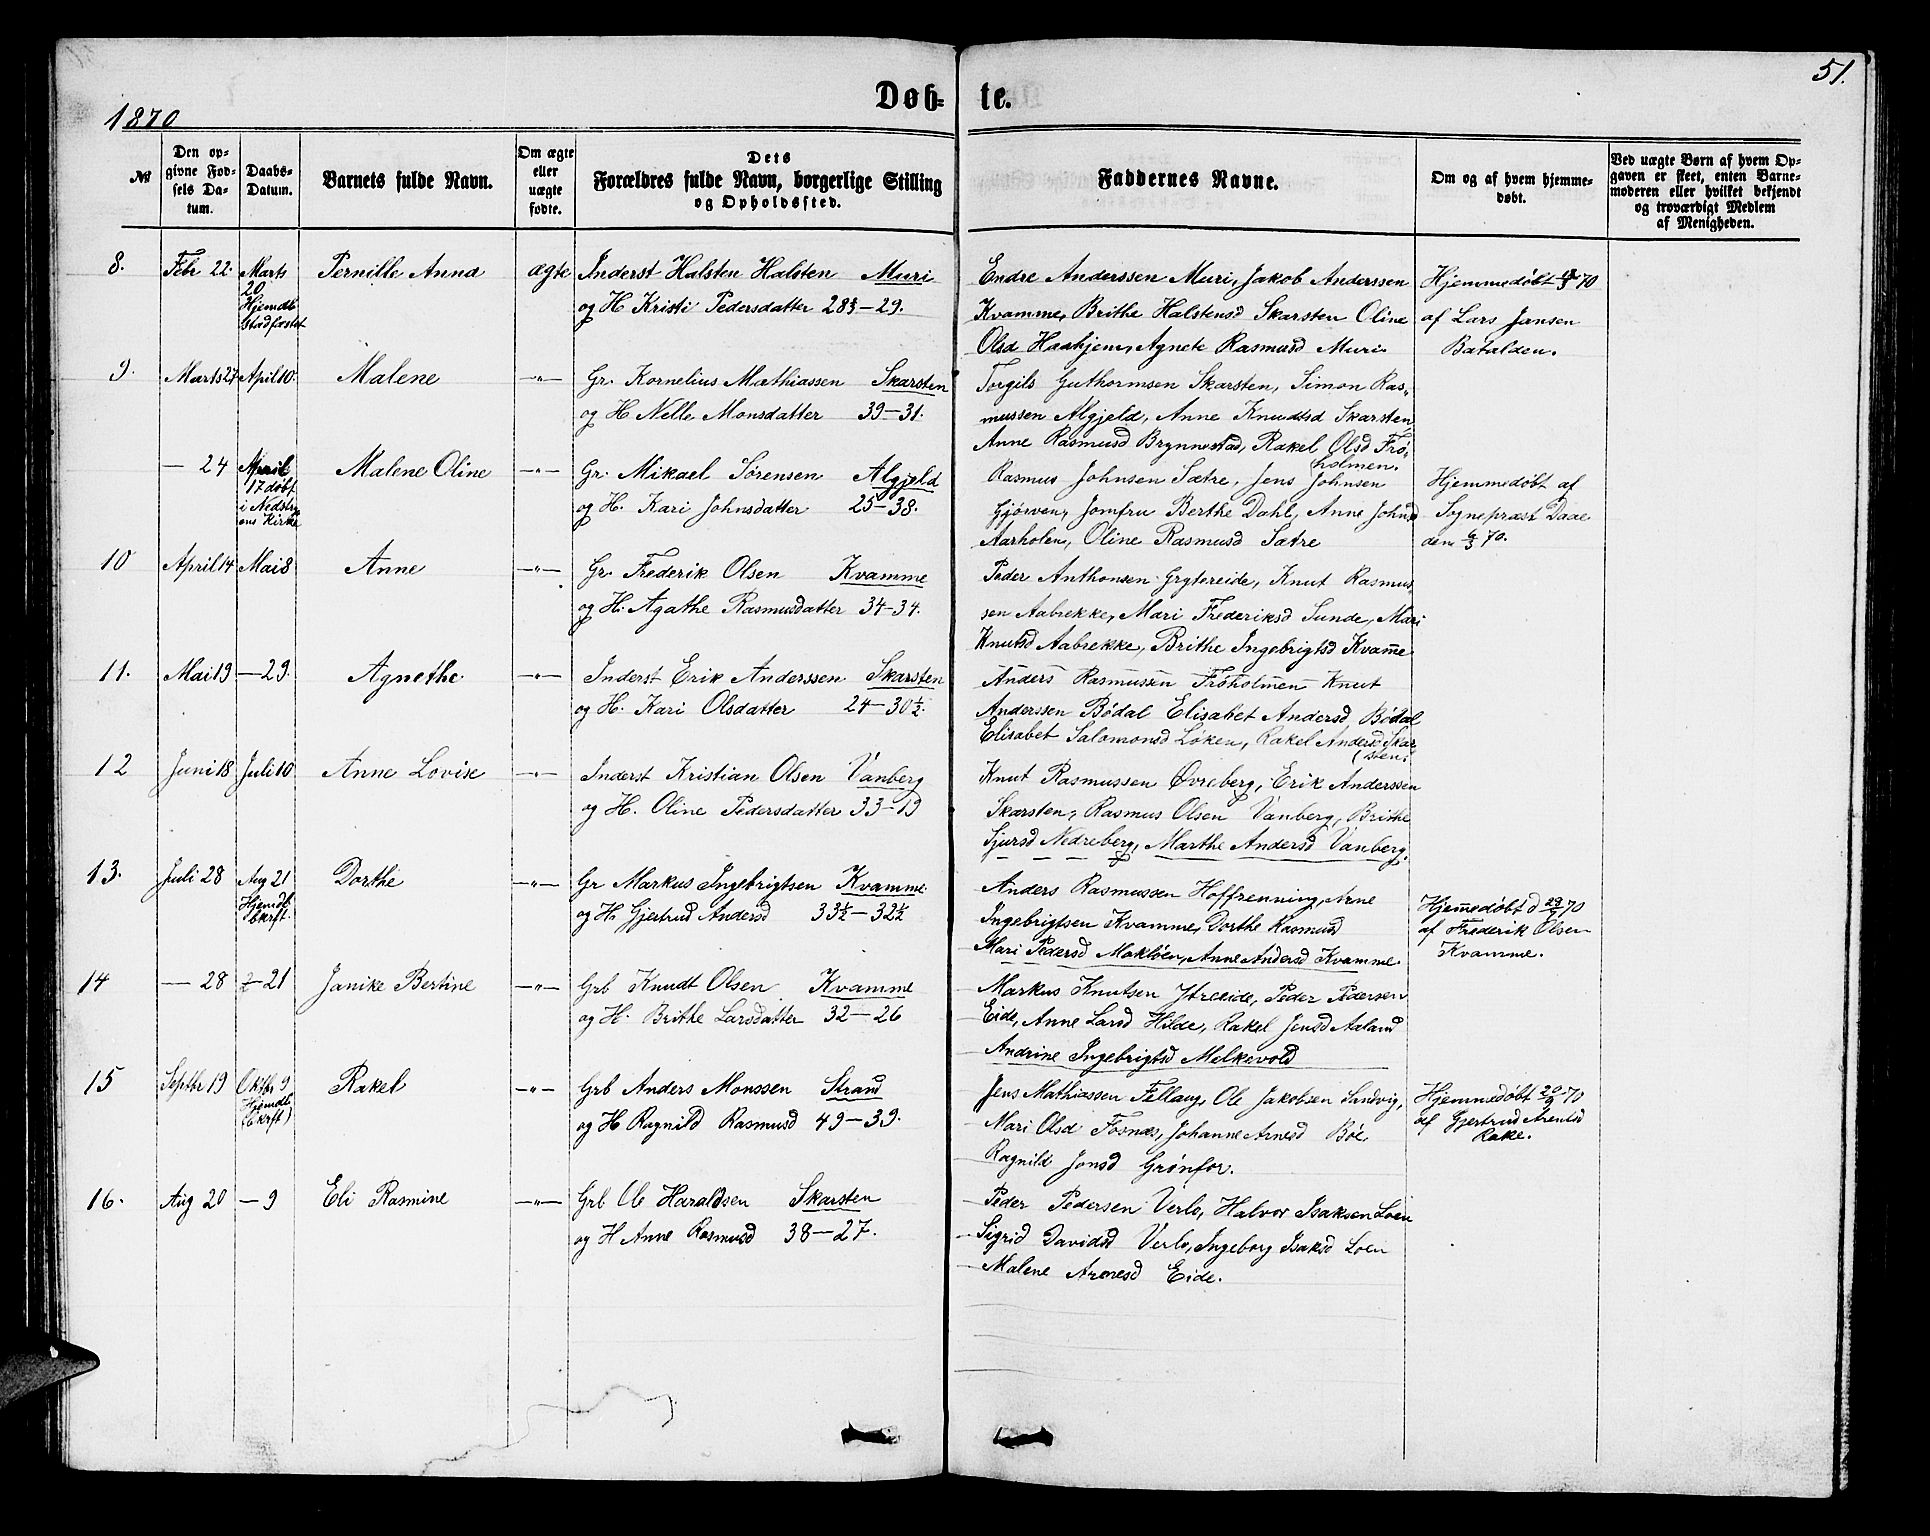 1870
Døb-
te.
51.
№
Den opgivne Fødsels Datum.
Daabs-Datum.
Barnets fulde Navn.
Om ægte eller uægte fødte.
Dets Forældres fulde Navn, borgerlige Stilling og Opholdssted.
Faddernes Navne.
Om og af hvem hjemmedøbt.
Ved uægte Børn af hvem Opgaven er skeet, enten Barnemoderen eller hvilket bekjendt og troværdigt Medlem af Menigheden.
8. Febr 22. Marts 20 Hjemdb Stadfæstet Pernille Anna ægte Inderst Halsten Halsten Muri
og H Kristi Pedersdatter 28¾ – 29.
Endre Anderssen Muri, Jakob Anderssen
Kvamme, Brithe Halstensd Skarsten Oline
Olsd Haahjem, Agnete Rasmusd Muri.
Hjemmedøbt 70
af Lars Jansen
Batalden.
9. Marts 27 April 10. Malene –"– Gr. Kornelius Mathiassen Skarsten
og H Nelle Monsdatter 39–31.
Torgils Guthormsen Skarsten, Simon Ras-
mussen Algjeld, Anne Knudtsd Skarsten,
Anne Rasmusd Brynnestad, Rakel Olsd Frø-
holmen.
– 24 April 17 døbt i Nedstryens Kirke Malene Oline –"– Gr. Mikael Sørensen Algjeld
og H. Kari Johnsdatter 25–38.
Rasmus Johnsen Sætre, Jens Johnsen
Gjørven, Jomfru Berthe Dahl, Anne Johnsd
Aarholen, Oline Rasmusd Sætre
Hjemmedøbt af
Sognepræst Daae
den 6/3 70.
10 April 14 Mai 8 Anne –"– Gr. Frederik Olsen Kvamme
og H. Agathe Rasmusdatter 34–34.
Peder Anthonsen Grytereide, Knut Rasmus-
sen Aabrekke, Mari Frederiksd Sunde, Mari
Knutsd Aabrekke, Brithe Ingebrigtsd Kvam̅e
11. Mai 19 – 29. Agnethe –"– Inderst Erik Anderssen Skarsten
og H. Kari Olsdatter 24–30½.
Anders Rasmussen Frøholmen Knut
Anderssen Bødal Elisabet Andersd Bødal
Elisabet Salomonsd Løken, Rakel Andersd Skar-
sten.
12 Juni 18 Juli 10 Anne Lovise –"– Inderst Kristian Olsen Vanberg
og H. Oline Pedersdatter 33–19
Knut Rasmussen Øvreberg, Erik Anderssen
Skarsten, Rasmus Olsen Vanberg, Brithe
Sjursd Nedreberg, Marthe Andersd Vanberg.
13. Juli 28 Aug 21 Hjemdb bkrft. Dorthe –"– Gr Markus Ingebrigtsen Kvamme
og H. Gjertrud Andersd 33½–32½
Anders Rasmussen Hoffrenning, Arne
Ingebrigtsen Kvamme, Dorthe Rasmusd
Mari Pedersd Mokløen, Anne Andersd Kvamme.
Hjem̅edøbt d 29/7 70
af Frederik Olsen
Kvamme.
14 – 28 – 21 Janike Bertine –"– Grb Knudt Olsen Kvamme
og H. Brithe Larsdatter 32–26
Markus Knutsen Ytreeide, Peder Pedersen
Eide, Anne Larsd Hilde, Rakel Jensd Aaland
Andrine Ingebrigtsd Melkevold
15 Septbr 19 Oktbr 9 Hjemdb (bkrft) Rakel –"– Grb Anders Monssen Strand
og H Ragnild Rasmusd 49–39.
Jens Mathiassen Fellang, Ole Jakobsen Sandvig,
Mari Olsd Fosnæs, Johanne Arnesd Bøe
Ragnild Jonsd Grønfor.
Hjemmedøbt 20/9 70
af Gjertrud Arentsd
Rake.
16. Aug 20 – 9 Eli Rasmine –"– Grb Ole Haraldsen Skarsten
og H Anne Rasmusd 38–27.
Peder Pedersen Verlo, Halvor Isaksen Loen
Sigrid Davidsd Verlo, Ingeborg Isaksd Loen
Malene Arnesd Eide.